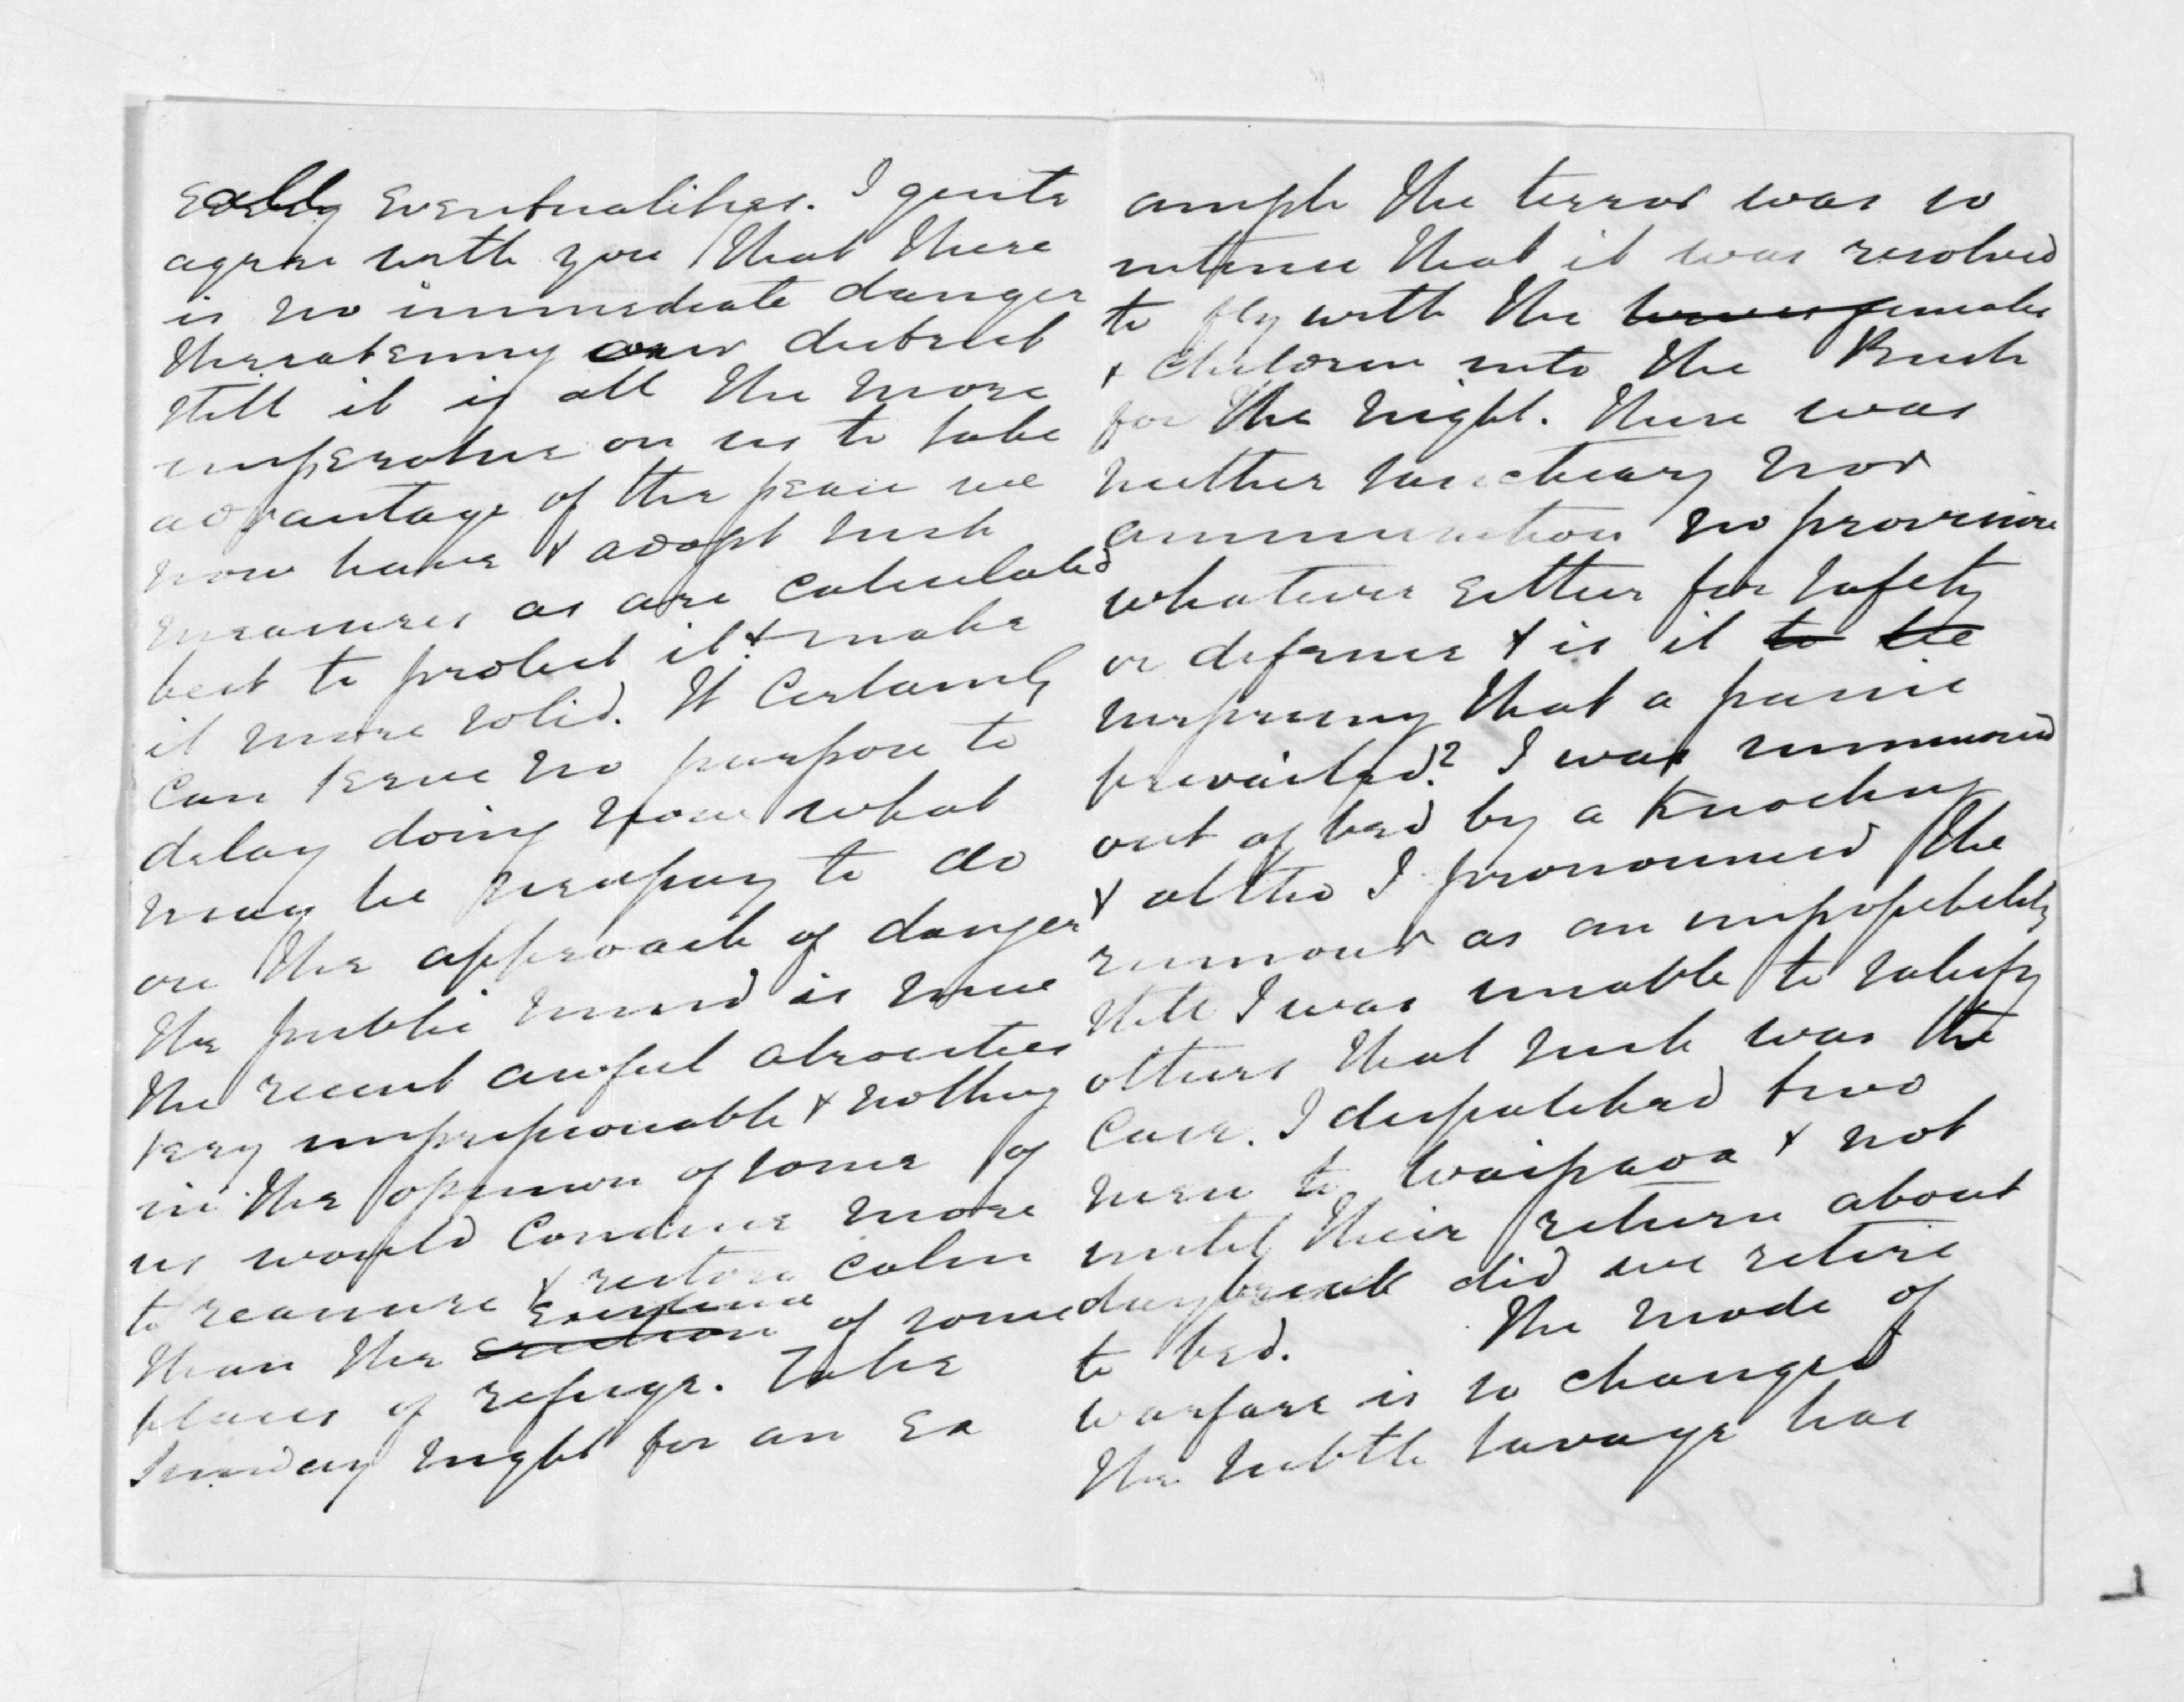 all eventualities. I quite
agree with you that there
is no immediate danger
threatening our district
still it is all the more
imperative on us to take
advantage of the peace we
now have & adopt such
measures as are calculated
best to protect it & make
it more solid. It certainly
can serve no purpose to
delay doing now what
may be necessary to do
on the approach of danger
the public mind is since
the recent awful atrocities
very impressionable & nothing
in the opinion of some of
us would conduce more
to reassure & restore calm
than the existence of some
places of refuge. Take
Sunday night for an ex
ample the terror was so
intense that it was resolved
to fly with the females
& children into the Bush
for the night. There was
neither sanctuary nor
ammunition no provision
whatever either for safety
or defence & is it
surprising that a panic
prevailed? I was summoned
out of bed by a knocking
& altho I pronounced the
rumour as an improbability
still I was unable to satisfy
others that such was the
case. I despatched two
men to Waipawa & not
until their return about
daybreak did we retire
to bed. The mode of
warfare is so changed
the subtle savage has